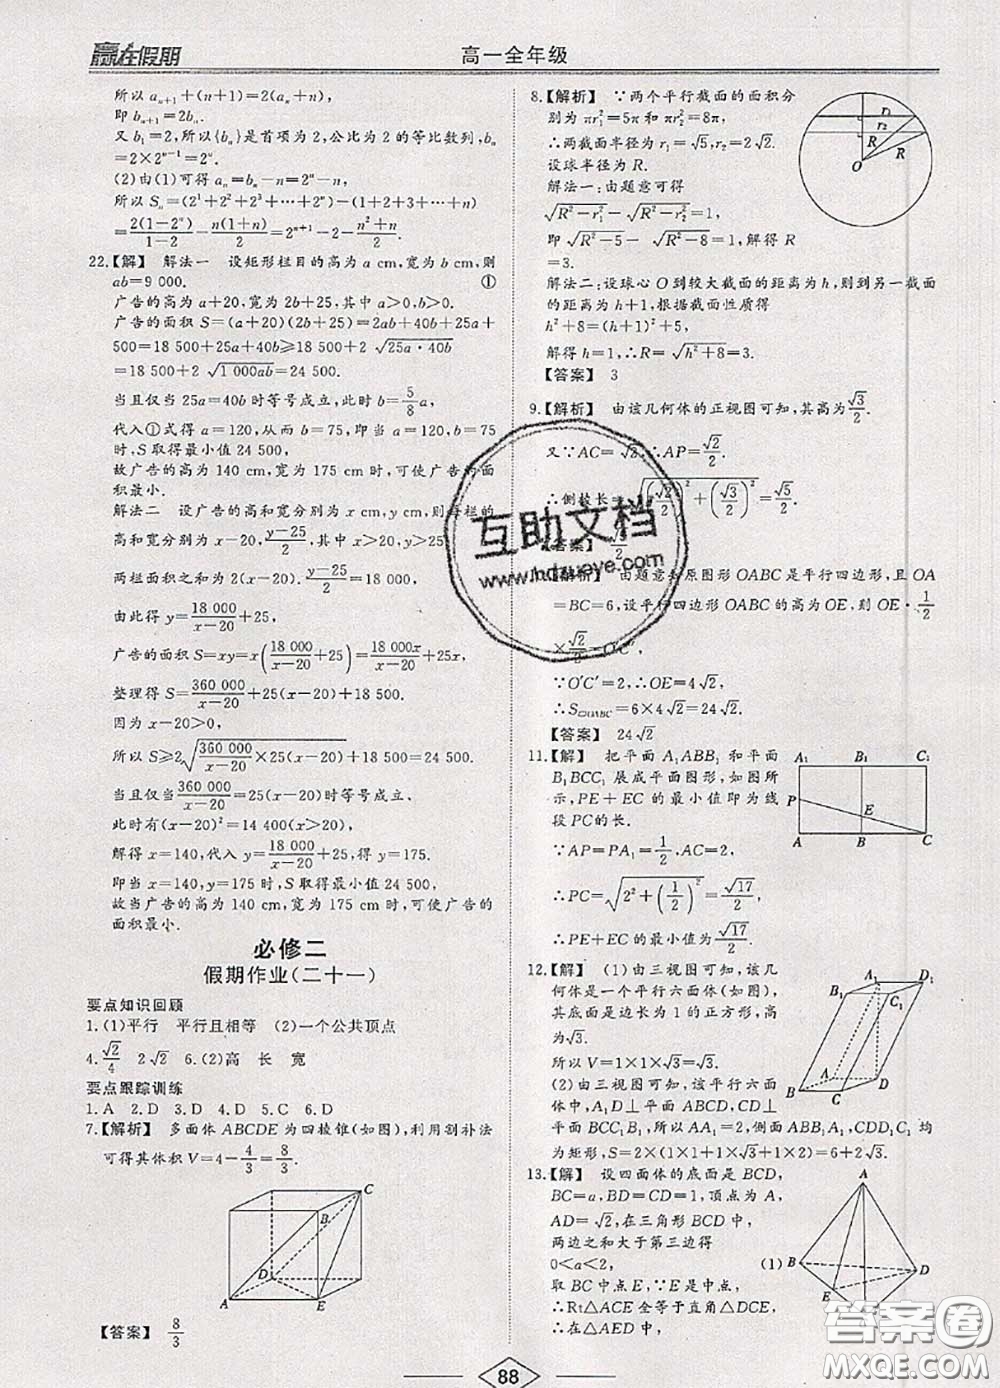 赢在假期
高一全年级
所以 aₙ₊₁+(n+1)=2(aₙ+n),
即 bₙ₊₁=2bₙ.
又 b₁=2,所以{bₙ}是首项为 2,公比为 2 的等比数列,bₙ
=2×2ⁿ⁻¹=2ⁿ.
(2)由(1)可得 aₙ=bₙ-n=2ⁿ-n,
所以 Sₙ=(2¹+2²+2³+…+2ⁿ)-(1+2+3+…+n)
=2(1-2ⁿ)/(1-2)-n(1+n)/2=2ⁿ⁺¹-2-(n²+n)/2.
22.【解】 解法一 设矩形栏目的高为 a cm,宽为 b cm,则
ab=9 000. ①
广告的高为 a+20,宽为 2b+25,其中 a>0,b>0.
广告的面积 S=(a+20)(2b+25)=2ab+40b+25a+
500=18 500+25a+40b≥18 500+2√(25a·40b)
=18 500+2√(1 000ab)=24 500.
当且仅当 25a=40b 时等号成立,此时 b=5/8 a,
代入①式得 a=120,从而 b=75,即当 a=120,b=75
时,S 取得最小值 24 500,
故广告的高为 140 cm,宽为 175 cm 时,可使广告的面
积最小.
解法二 设广告的高和宽分别为 x cm,y cm,则每栏的
高和宽分别为 x-20,(y-25)/2,其中 x>20,y>25.
两栏面积之和为 2(x-20)·(y-25)/2=18 000,
由此得 y=18 000/(x-20)+25,
广告的面积 S=xy=x(18 000/(x-20)+25)=18 000x/(x-20)+25x,
整理得 S=360 000/(x-20)+25(x-20)+18 500.
因为 x-20>0,
所以 S≥2√(360 000/(x-20)×25(x-20))+18 500=24 500.
当且仅当 360 000/(x-20)=25(x-20)时等号成立,
此时有(x-20)²=14 400(x>20),
解得 x=140,代入 y=18 000/(x-20)+25,得 y=175.
即当 x=140,y=175 时,S 取得最小值 24 500,
故当广告的高为 140 cm,宽为 175 cm 时,可使广告的
面积最小.
必修二
假期作业(二十一)
要点知识回顾
1.(1)平行 平行且相等 (2)一个公共顶点
4.√2/4 2√2 6.(2)高 长 宽
要点跟踪训练
1.A 2.D 3.D 4.D 5.C 6.D
7.【解析】 多面体 ABCDE 为四棱锥(如图),利用割补法
可得其体积 V=4-4/3=8/3.
C
B
D
A
E
【答案】 8/3
8.【解析】 ∵两个平行截面的面积分
别为 πr₁²=5π 和 πr₂²=8π,
∴两截面半径为 r₁=√5,r₂=2√2.
设球半径为 R.
解法一:由题意可得
√(R²-r₁²)-√(R²-r₂²)=1,
即 √(R²-5)-√(R²-8)=1,解得 R
=3.
r₁
r₂
R
R
O
解法二:设球心 O 到较大截面的距离为 h,则到另一截面
的距离为 h+1,根据截面性质得
h²+8=(h+1)²+5,
解得 h=1,∴R=√(h²+8)=3.
【答案】 3
9.【解析】 由该几何体的正视图可知,其高为√3/2.
又∵AC=√2,∴AP=√2/2.
∴侧棱长=√((√2/2)²+(√3/2)²)=√5/2.
【答案】
【解析】 由题意去原图形 OABC 是平行四边形,且 OA
=BC=6,设平行四边形 OABC 的高为 OE,则 OE·1/2
×√2/2=O′C′,
∵O′C′=2,∴OE=4√2,
∴S▱OABC=6×4√2=24√2.
【答案】 24√2
11.【解】 把平面 A₁ABB₁ 和平面
B₁BCC₁ 展成平面图形,如图所
示,PE+EC 的最小值即为线
段 PC的长.
∵AP=PA₁=1/2,AC=2,
∴PC=√(2²+(1/2)²)=√17/2,
∴PE+EC 的最小值为√17/2.
A₁ B₁ C₁
P
E
A B C
12.【解】 (1)由三视图可知,该几
何体是一个平行六面体(如图),
其底面是边长为 1 的正方形,高
为√3.
所以 V=1×1×√3=√3.
(2)由三视图可知,该平行六面
体中,A₁D⊥平面 ABCD,CD⊥
平面 BCC₁B₁,所以 AA₁=2,侧面 ABB₁A₁,CDD₁C₁ 均
为矩形,S=2×(1×1+1×√3+1×2)=6+2√3.
A₁ D₁
B₁ C₁
A D
B C
13.【解】 设四面体的底面是 BCD,
BC=a,BD=CD=1,顶点为 A,
AD=√2,在三角形 BCD 中,
两边之和大于第三边得
0<a<2, (1)
取 BC中点 E,∵E 是中点,
∴Rt△ACE 全等于直角△DCE,
∴在△AED 中,
A
B
D
E
互助文档
www.hdzuoye.com
答案圈
MXQE.COM
88